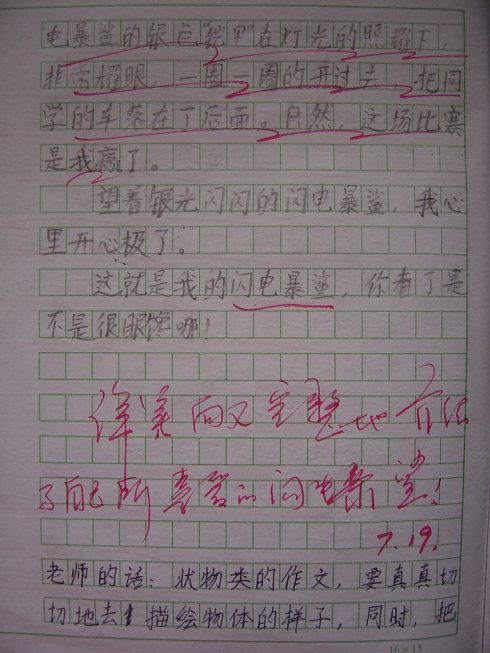 电暴鲨的银色铠甲在灯光的照耀下，
非常耀眼，一圈一圈的开过去，把同
学的车落在了后面。自然，这场比赛
是我赢了。
望着银光闪闪的闪电暴鲨，我心
里开心极了。
这就是我的闪电暴鲨，你看了是
不是很眼馋哪！
详实而又完整地介绍
了自己所喜爱的闪电暴鲨！
7.19.
老师的话：状物类的作文，要真真切
切地去描绘物体的样子，同时，把
16×15